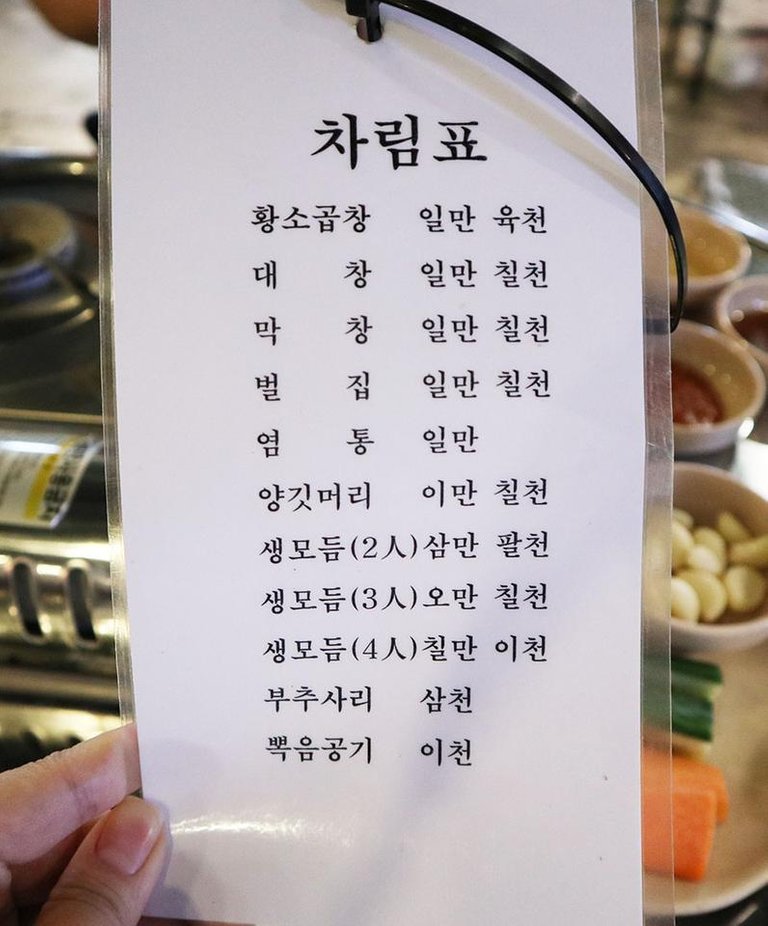 차림표
황소곱창 일만 육천
대 창 일만 칠천
막 창 일만 칠천
벌 집 일만 칠천
염 통 일만
양깃머리 이만 칠천
생모듬(2人) 삼만 팔천
생모듬(3人) 오만 칠천
생모듬(4人) 칠만 이천
부추사리 삼천
뽁음공기 이천